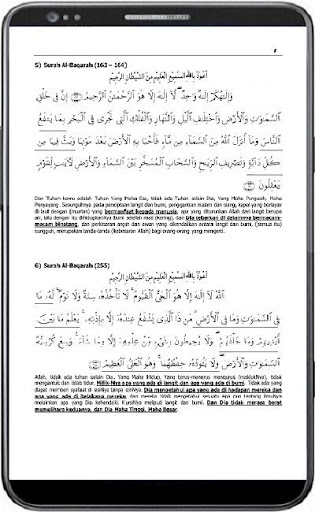 5) Surah Al-Baqarah (163 – 164)
أَعُوذُ بِاللَّهِ السَّمِيعِ الْعَلِيمِ مِنَ الشَّيْطَانِ الرَّجِيمِ
وَإِلَٰهُكُمْ إِلَٰهٌ وَٰحِدٌ ۖ لَّآ إِلَٰهَ إِلَّا هُوَ ٱلرَّحْمَٰنُ ٱلرَّحِيمُ ﴿١٦٣﴾ إِنَّ فِى خَلْقِ
ٱلسَّمَٰوَٰتِ وَٱلْأَرْضِ وَٱخْتِلَٰفِ ٱلَّيْلِ وَٱلنَّهَارِ وَٱلْفُلْكِ ٱلَّتِى تَجْرِى فِى ٱلْبَحْرِ بِمَا يَنفَعُ
ٱلنَّاسَ وَمَآ أَنزَلَ ٱللَّهُ مِنَ ٱلسَّمَآءِ مِن مَّآءٍ فَأَحْيَا بِهِ ٱلْأَرْضَ بَعْدَ مَوْتِهَا وَبَثَّ فِيهَا مِن
كُلِّ دَآبَّةٍ وَتَصْرِيفِ ٱلرِّيَٰحِ وَٱلسَّحَابِ ٱلْمُسَخَّرِ بَيْنَ ٱلسَّمَآءِ وَٱلْأَرْضِ لَءَايَٰتٍ لِّقَوْمٍ
يَعْقِلُونَ ﴿١٦٤﴾
Dan Tuhan kamu adalah Tuhan Yang Maha Esa, tidak ada Tuhan selain Dia, Yang Maha Pengasih, Maha
Penyayang. Sesungguhnya pada penciptaan langit dan bumi, penggantian malam dan siang, kapal yang berlayar
di laut dengan (muatan) yang bermanfaat kepada manusia, apa yang diturunkan Allah dari langit berupa
air, lalu dengan itu dihidupkannya bumi setelah mati (kering), dan Dia tebarkan di dalamnya bermacam-
macam binatang, dan perkisaran angin dan awan yang dikendalikan antara langit dan bumi, (semua itu)
sungguh, merupakan tanda-tanda (kebesaran Allah) bagi orang-orang yang mengerti.
6) Surah Al-Baqarah (255)
أَعُوذُ بِاللَّهِ السَّمِيعِ الْعَلِيمِ مِنَ الشَّيْطَانِ الرَّجِيمِ
ٱللَّهُ لَآ إِلَٰهَ إِلَّا هُوَ ٱلْحَىُّ ٱلْقَيُّومُ ۚ لَا تَأْخُذُهُۥ سِنَةٌ وَلَا نَوْمٌ ۚ لَّهُۥ مَا
فِى ٱلسَّمَٰوَٰتِ وَمَا فِى ٱلْأَرْضِ ۗ مَن ذَا ٱلَّذِى يَشْفَعُ عِندَهُۥٓ إِلَّا بِإِذْنِهِۦ ۚ يَعْلَمُ مَا بَيْنَ
أَيْدِيهِمْ وَمَا خَلْفَهُمْ ۖ وَلَا يُحِيطُونَ بِشَىْءٍ مِّنْ عِلْمِهِۦٓ إِلَّا بِمَا شَآءَ ۚ وَسِعَ كُرْسِيُّهُ
ٱلسَّمَٰوَٰتِ وَٱلْأَرْضَ ۖ وَلَا يَـُٔودُهُۥ حِفْظُهُمَا ۚ وَهُوَ ٱلْعَلِىُّ ٱلْعَظِيمُ ﴿٢٥٥﴾
Allah, tidak ada tuhan selain Dia, Yang Maha Hidup, Yang terus-menerus mengurus (makhlukNya), tidak
mengantuk dan tidak tidur. Milik-Nya apa yang ada di langit dan apa yang ada di bumi. Tidak ada yang
dapat memberi syafaat di sisiNya tanpa izinNya. Dia mengetahui apa yang ada di hadapan mereka dan
apa yang ada di belakang mereka, dan mereka tidak mengetahui sesuatu apa pun tentang IlmuNya
melainkan apa yang Dia kehendaki. KursiNya meliputi langit dan bumi. Dan Dia tidak merasa berat
memelihara keduanya, dan Dia Maha Tinggi, Maha Besar.